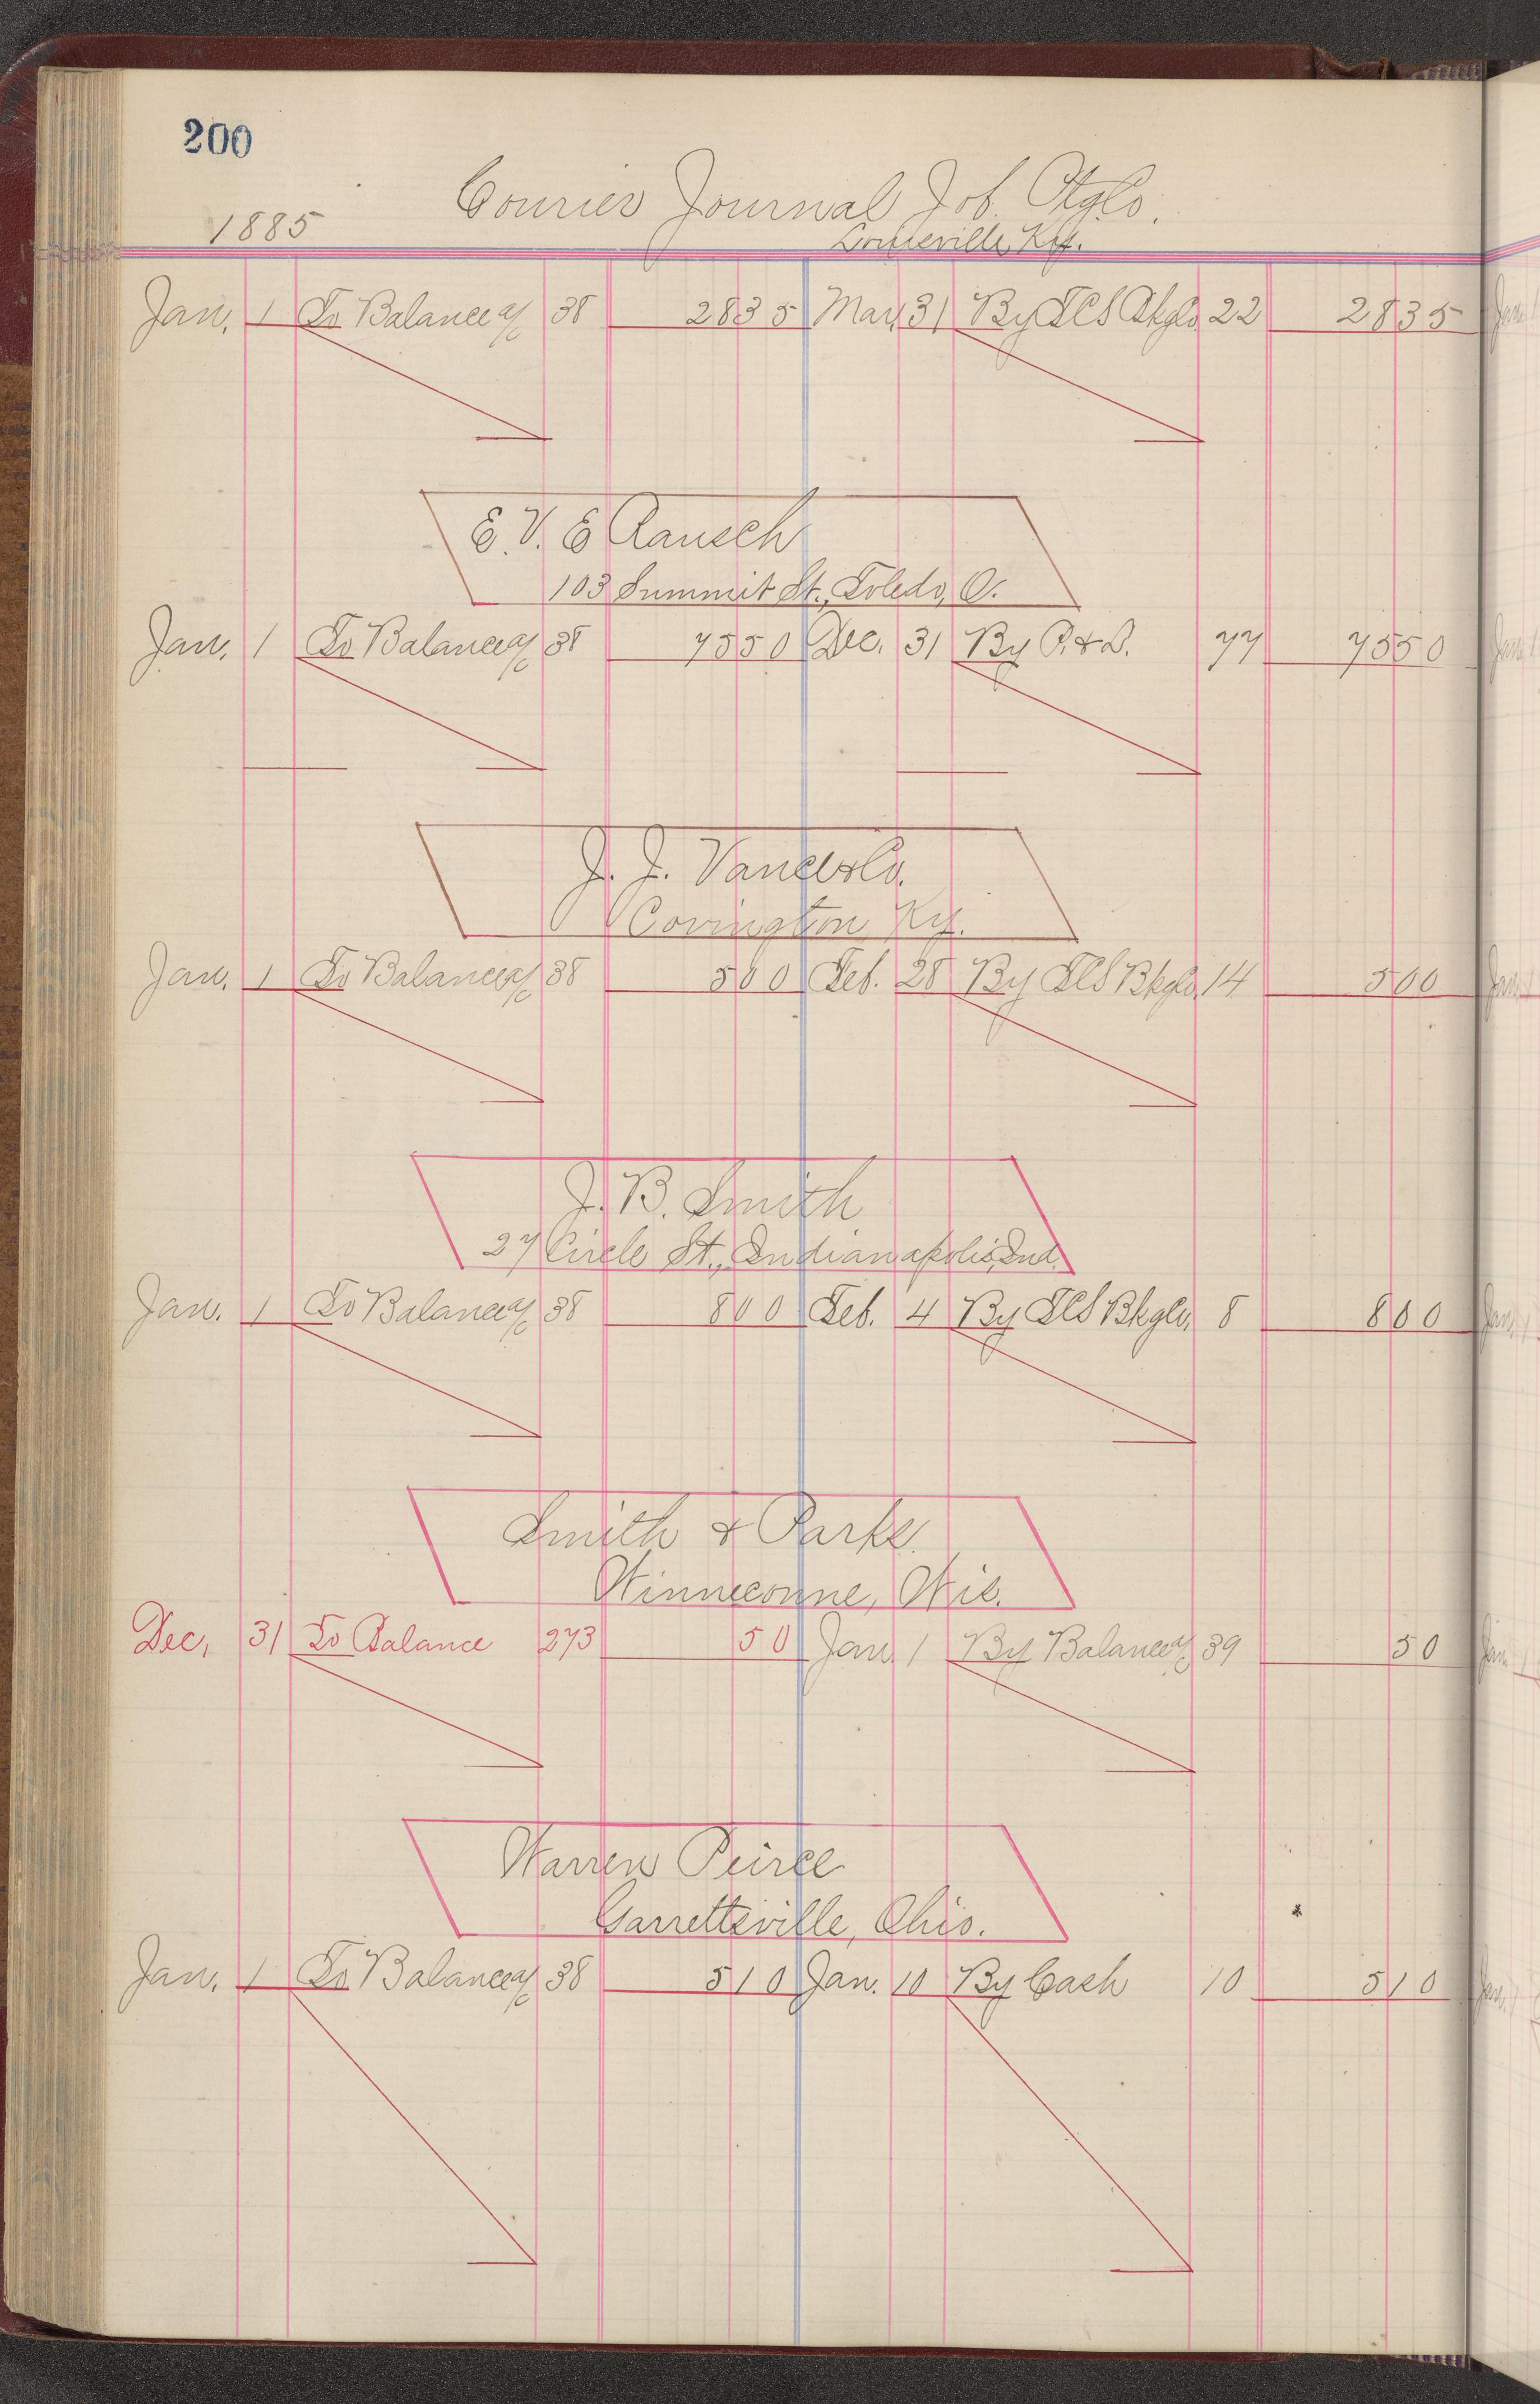 200
Courier Journal Job Ptg Co.
1885
Louisville, Ky.
Jan. 1 To Balance a/c 38 2835 Mar. 31 By TCS Bkg Co 22 2835
E. V. E Rausch
103 Summit St., Toledo, O.
Jan. 1 To Balance a/c 38 7550 Dec. 31 By P. & L. 77 7550
J. J. Vance & Co.
Covington, Ky.
Jan. 1 To Balance a/c 38 500 Feb. 28 By TCS Bkg Co. 14 500
J. B. Smith
27 Circle St., Indianapolis, Ind.
Jan. 1 To Balance a/c 38 800 Feb. 4 By TCS Bkg Co. 8 800
Smith & Parks.
Winneconne, Wis.
Dec. 31 To Balance 273 50 Jan. 1 By Balance a/c 39 50
Warren Peirce
Garrettsville, Ohio.
Jan. 1 To Balance a/c 38 510 Jan. 10 By Cash 10 510